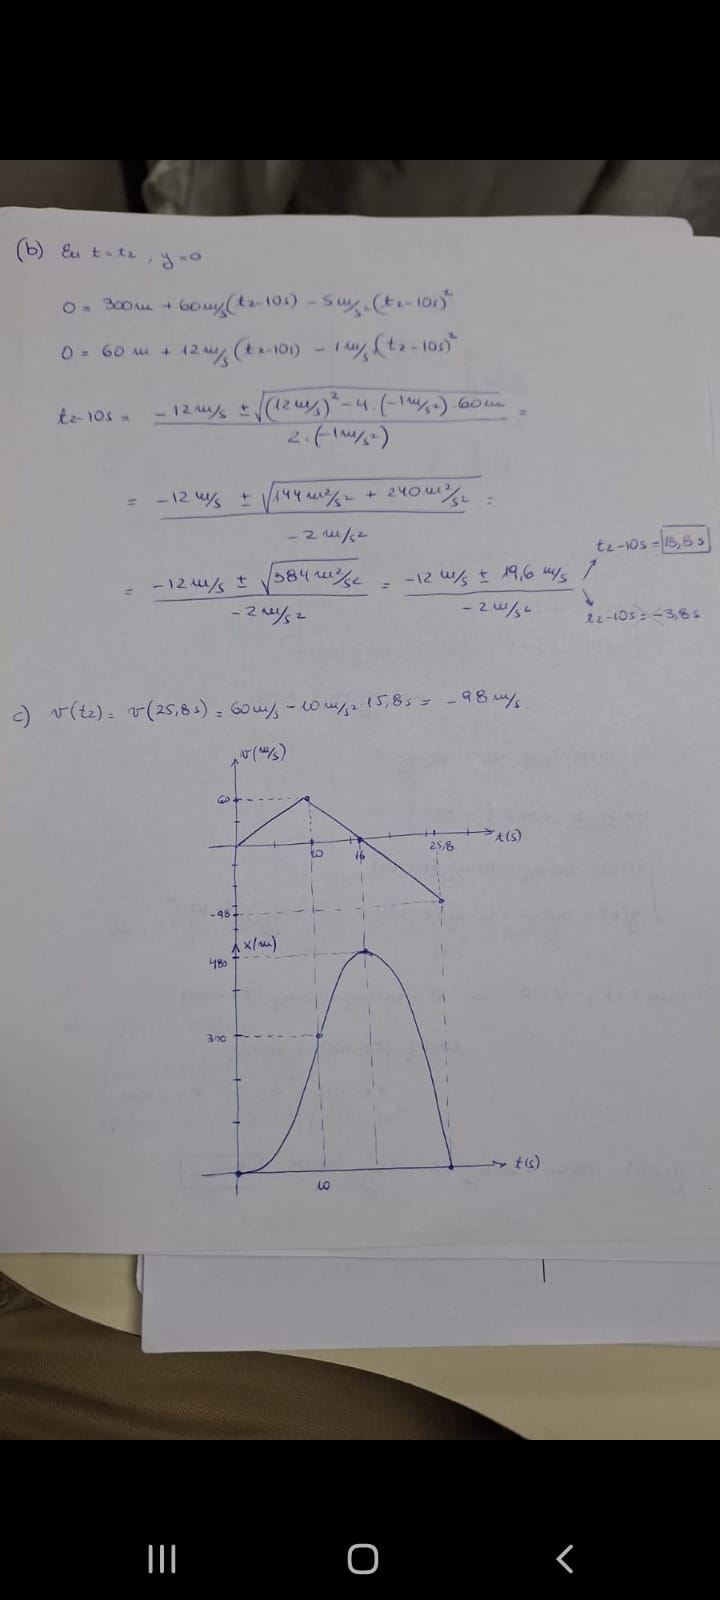 (b) En t=t₂, y=0
0 = 300m + 60m/s(t₂-10s) - 5m/s².(t₂-10s)²
0 = 60 m + 12m/s (t₂-10s) - 1m/s²(t₂-10s)²
t₂-10s = (-12m/s ± √((12m/s)² - 4.(-1m/s²).60m)) / (2.(-1m/s²)) =
= (-12m/s ± √(144m²/s² + 240m²/s²)) / (-2m/s²) =
= (-12m/s ± √(384m²/s²)) / (-2m/s²) = (-12m/s ± 19,6 m/s) / (-2m/s²)
t₂-10s = 15,8s
t₂-10s = -3,8s
c) v(t₂) = v(25,8s) = 60m/s - 10m/s².15,8s = -98m/s
v(m/s)
60
10
16
25,8
t(s)
-98
x(m)
480
300
t(s)
10